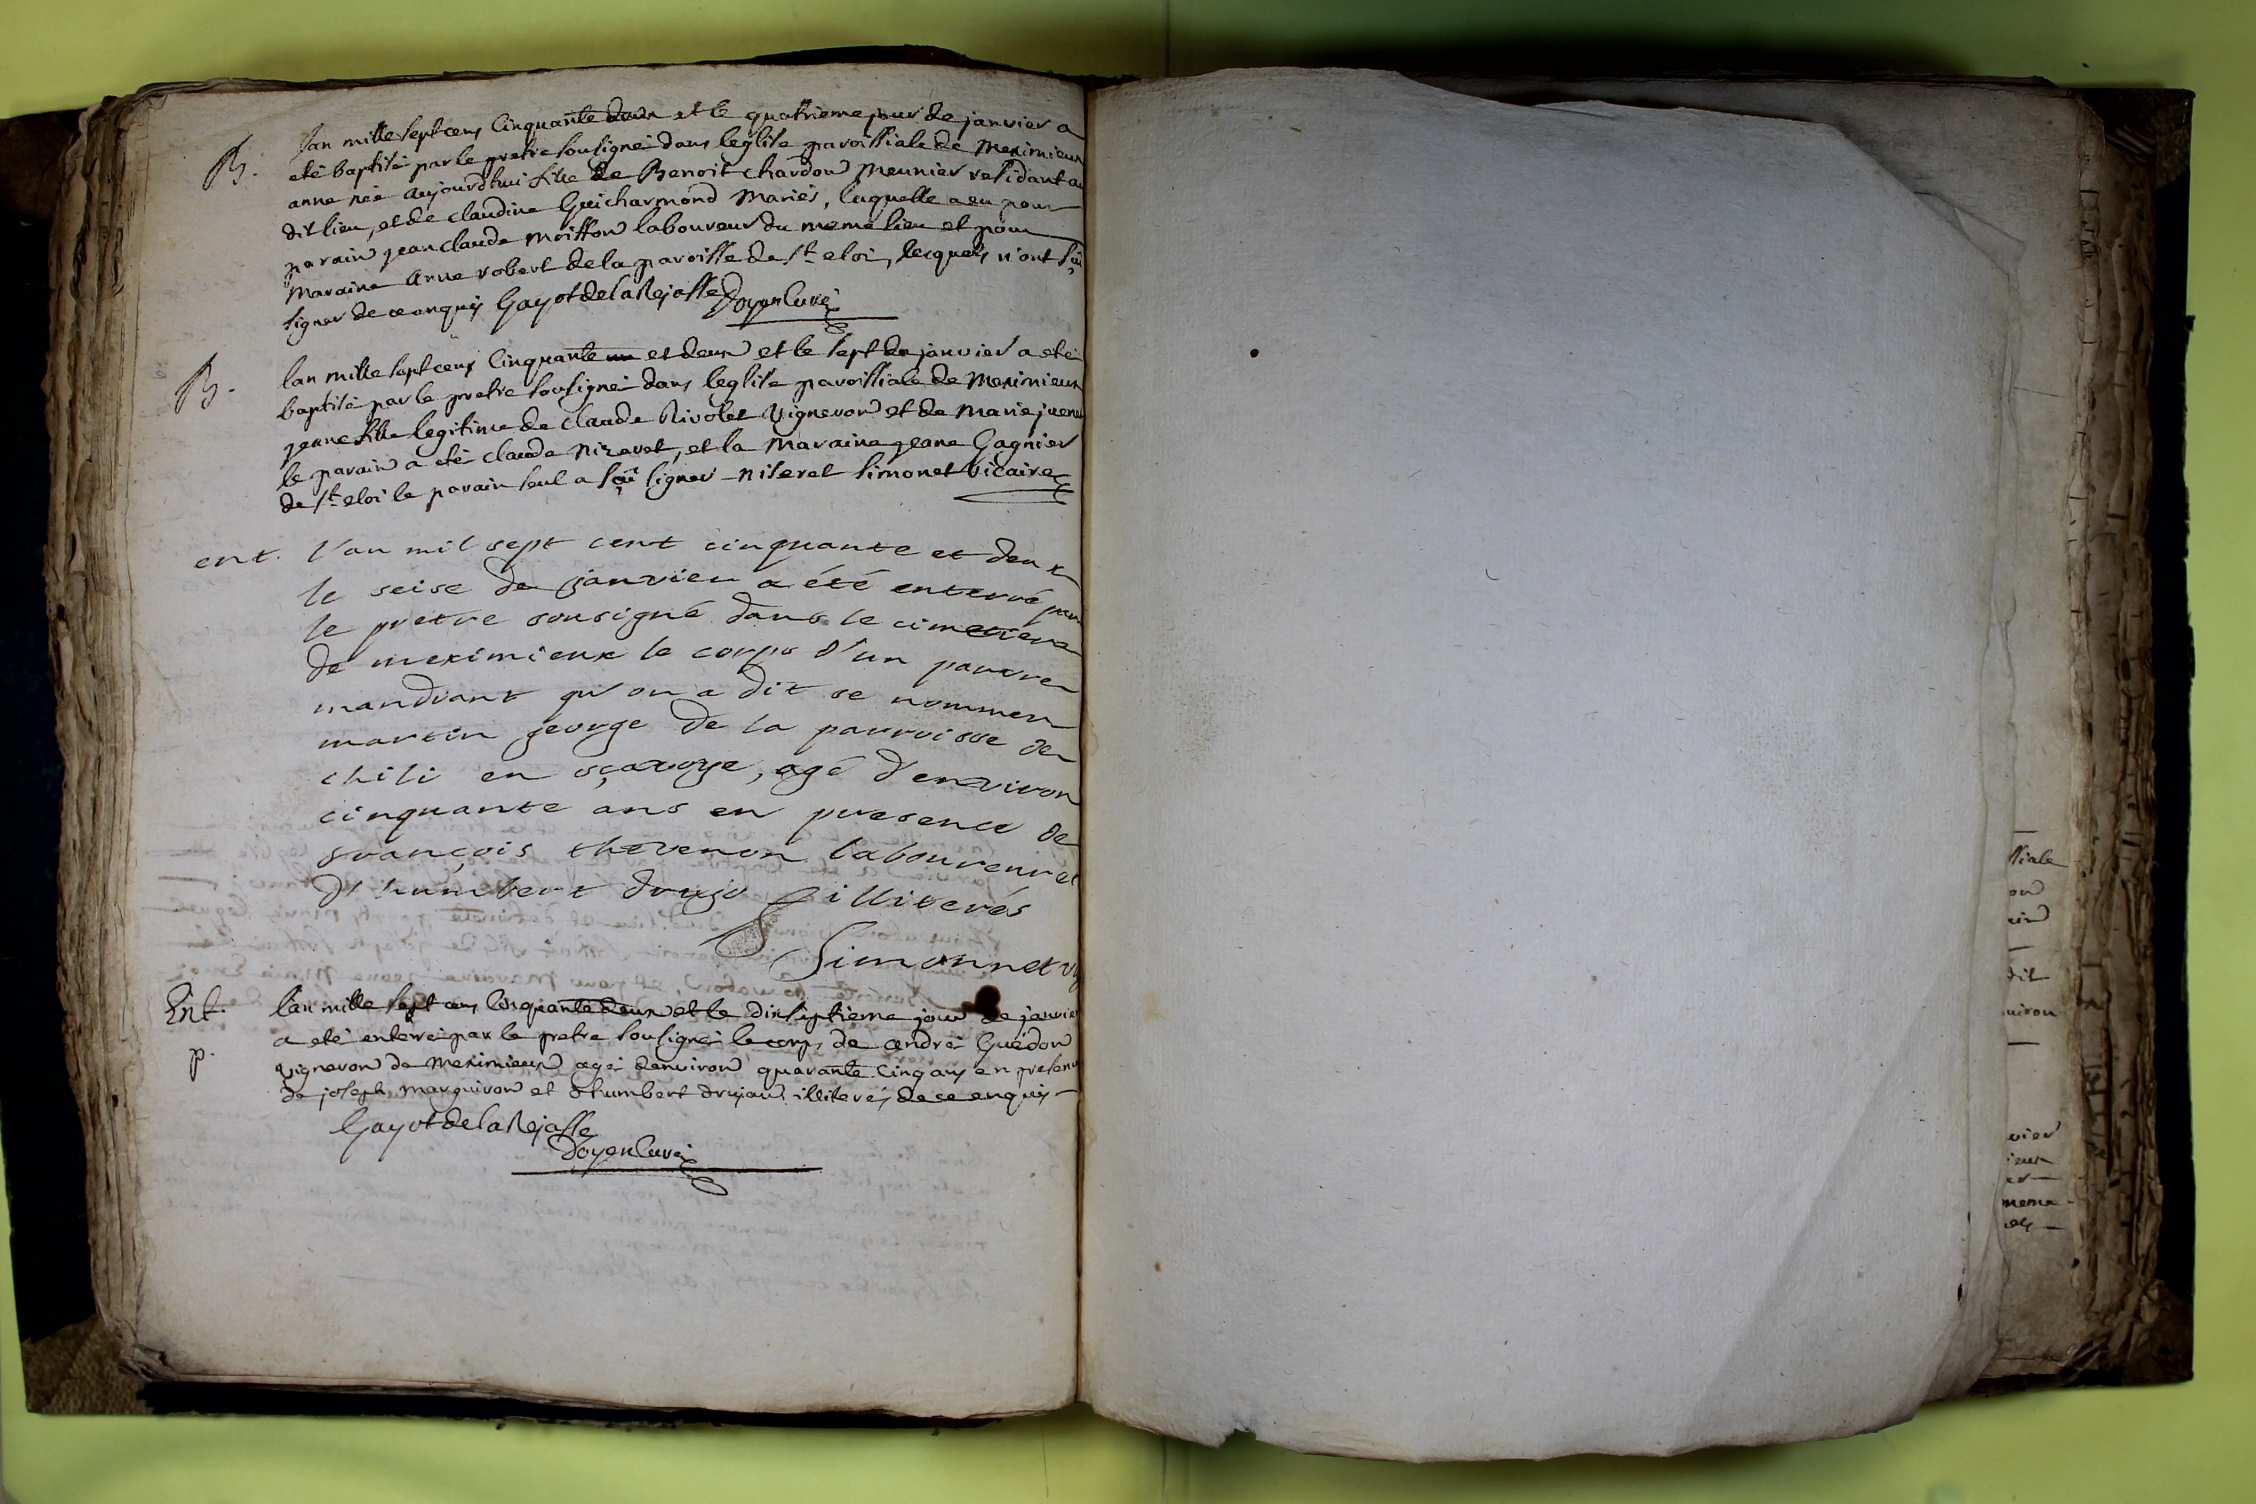 B. lan mille sept cens Cinquante deux et le quatrieme jour de janvier a
eté baptisé par le pretre sousigné dans leglise paroissiale de Meximieux
anne née aujourdhui fille de Benoit chardon Meunier residant au
dit lieu, et de claudine Guicharmond Mariés, laquelle a eu pour
parain jean claude moisson laboureur du meme lieu et pour
Maraine anne robert de la paroisse de St eloi, lecquels n'ont sçû
signer de ce enquis Gayot de la Rejasse Doyen Curé
B. lan mille sept cens Cinquante et deux et le sept de janvier a eté
baptisé par le pretre sousigné dans leglise paroissiale de Meximieux
jeane fille legitime de claude Rivolet vigneron et de Marie
le parain a eté claude Nizeret, et la Maraine jeane Gagnier
de St eloi le parain seul a sçû signer - niseret simonet Vicaire
ent. l'an mil sept cent cinquante et deux
le seise de janvier a été enterré par
le prêtre sousigné dans le cimetiere
de meximieux le corps d'un pauvre
mandiant qu'on a dit se nommer
martin george de la parroisse de
chili en sçavoye, agé d'environ
cinquante ans en presence de
françois thevenon laboureur et
d'humbert drujo illiterés
Simonnet v
Ent. lan mille sept cens Cinquante deux et le dixseptieme jour de janvier
a eté enterré par le pretre sousigné le corps de andré Guédon
p. vigneron de Meximieux agé denviron quarante Cinq ans en presence
de joseph marguiron et dhumbert drujau illiterés de ce enquis
Gayot de la Rejasse
Doyen Curé
ssiale
on
rin
dit
uiron
vier
ieux
meme